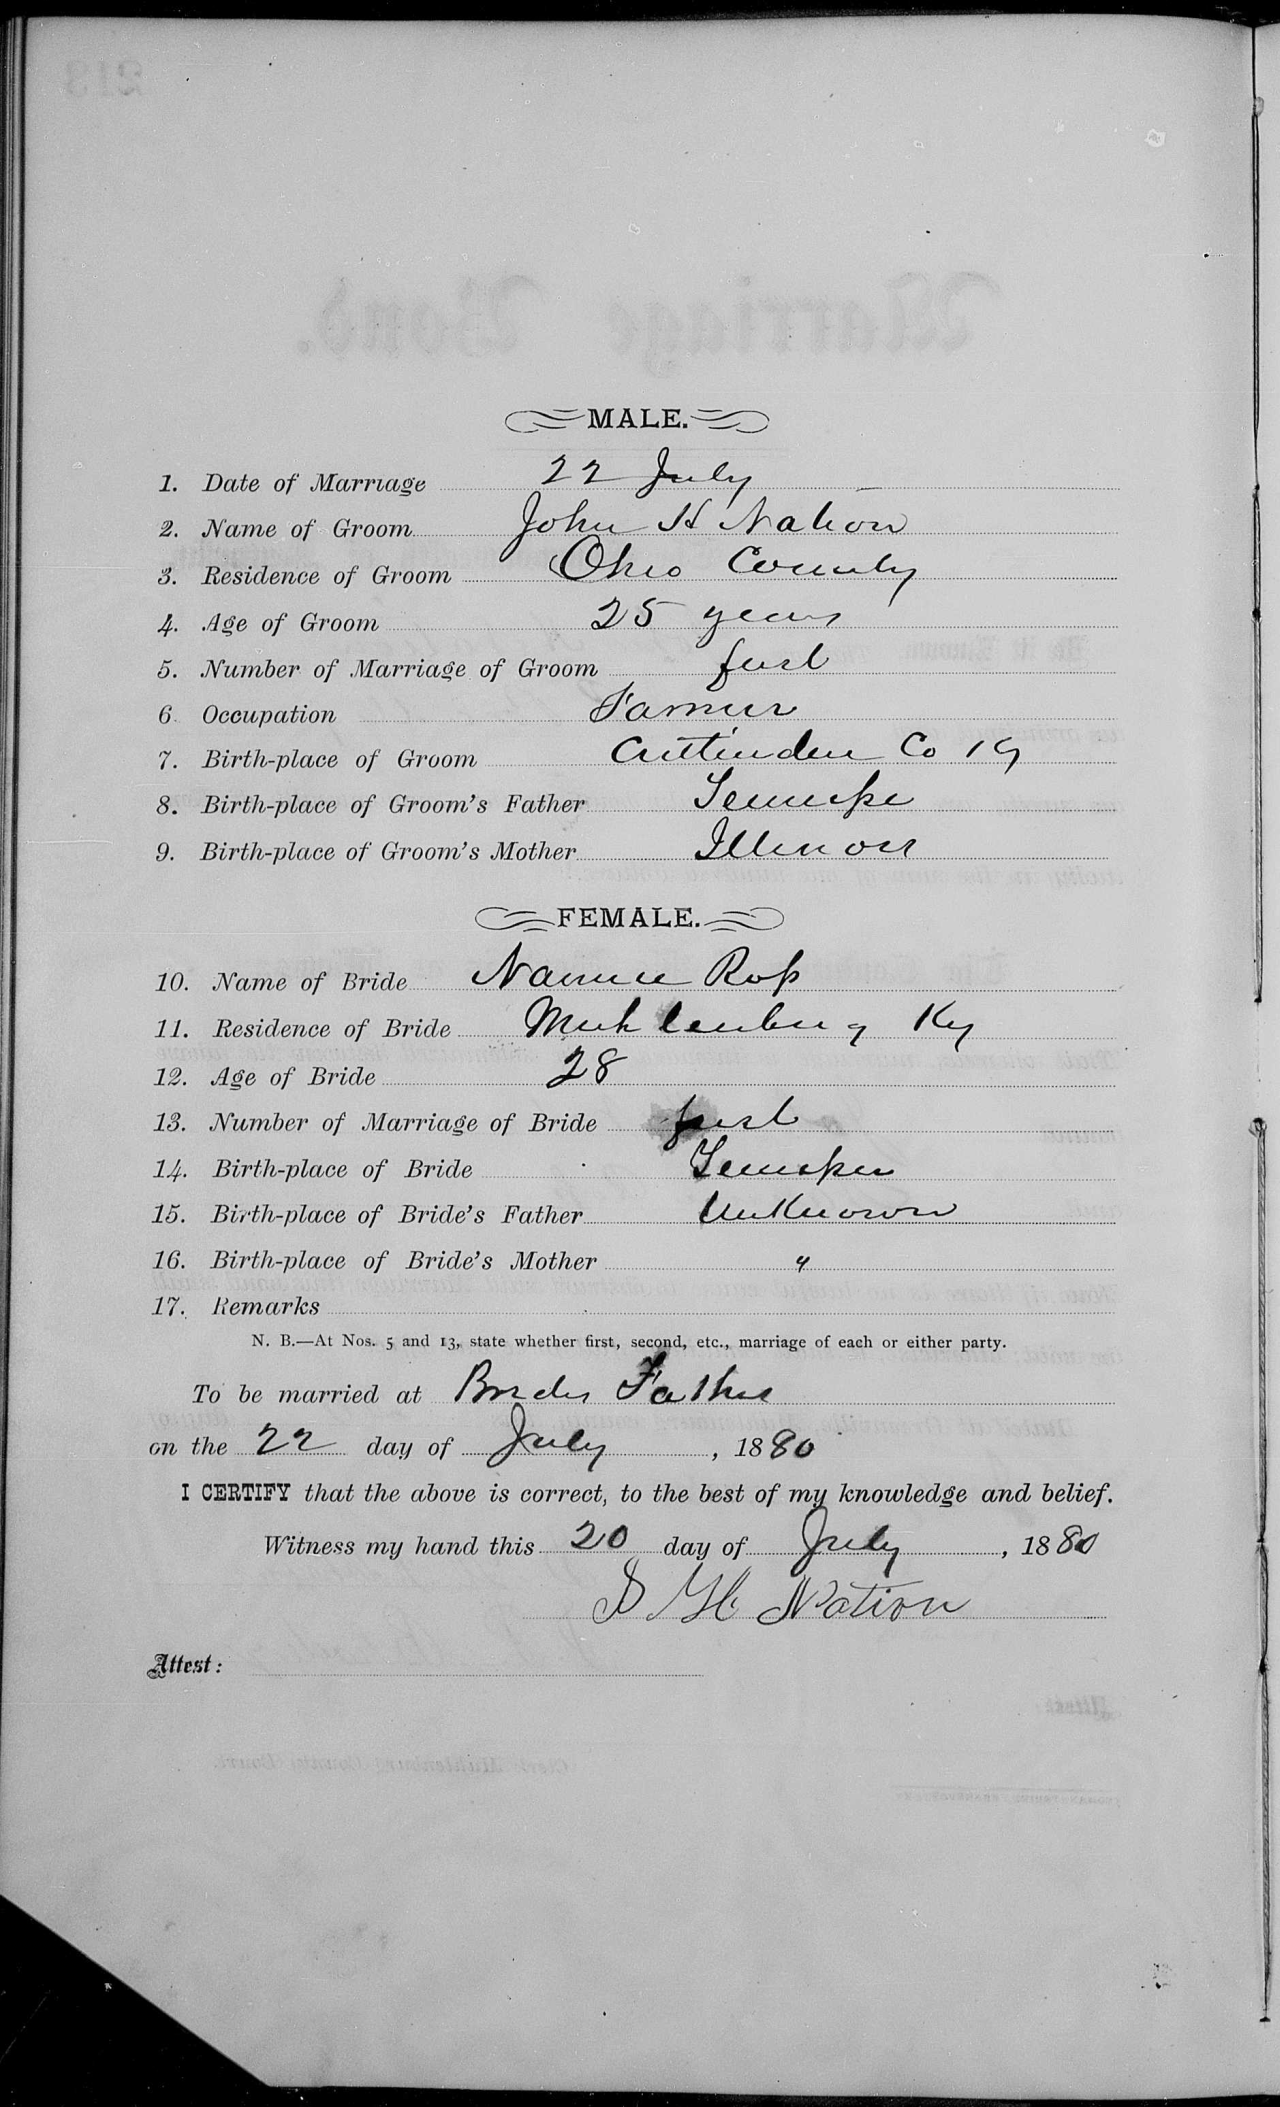 MALE.
1. Date of Marriage 22 July
2. Name of Groom John H Nation
3. Residence of Groom Ohio County
4. Age of Groom 25 years
5. Number of Marriage of Groom first
6 Occupation Farmer
7. Birth-place of Groom Crittenden Co Ky
8. Birth-place of Groom's Father Tennessee
9. Birth-place of Groom's Mother Illinois
FEMALE.
10. Name of Bride Nannie Ross
11. Residence of Bride Muhlenburg Ky
12. Age of Bride 28
13. Number of Marriage of Bride first
14. Birth-place of Bride Tennessee
15. Birth-place of Bride's Father Unknown
16. Birth-place of Bride's Mother "
17. Remarks
N. B.—At Nos. 5 and 13, state whether first, second, etc., marriage of each or either party.
To be married at Brides Father
on the 22 day of July, 1880
I CERTIFY that the above is correct, to the best of my knowledge and belief.
Witness my hand this 20 day of July, 1880
J H Nation
Attest: